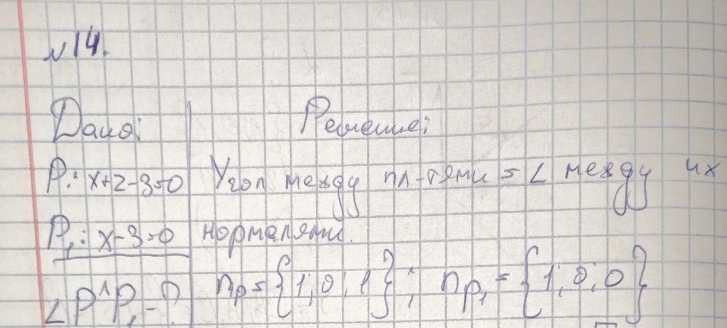 №14.
Дано: Решение:
P: x+z-3=0 Угол между пл-тями = ∠ между их
P₁: x-3=0 нормалями.
∠P^P₁-? n_p = {1; 0; 1}; n_p₁ = {1; 0; 0}